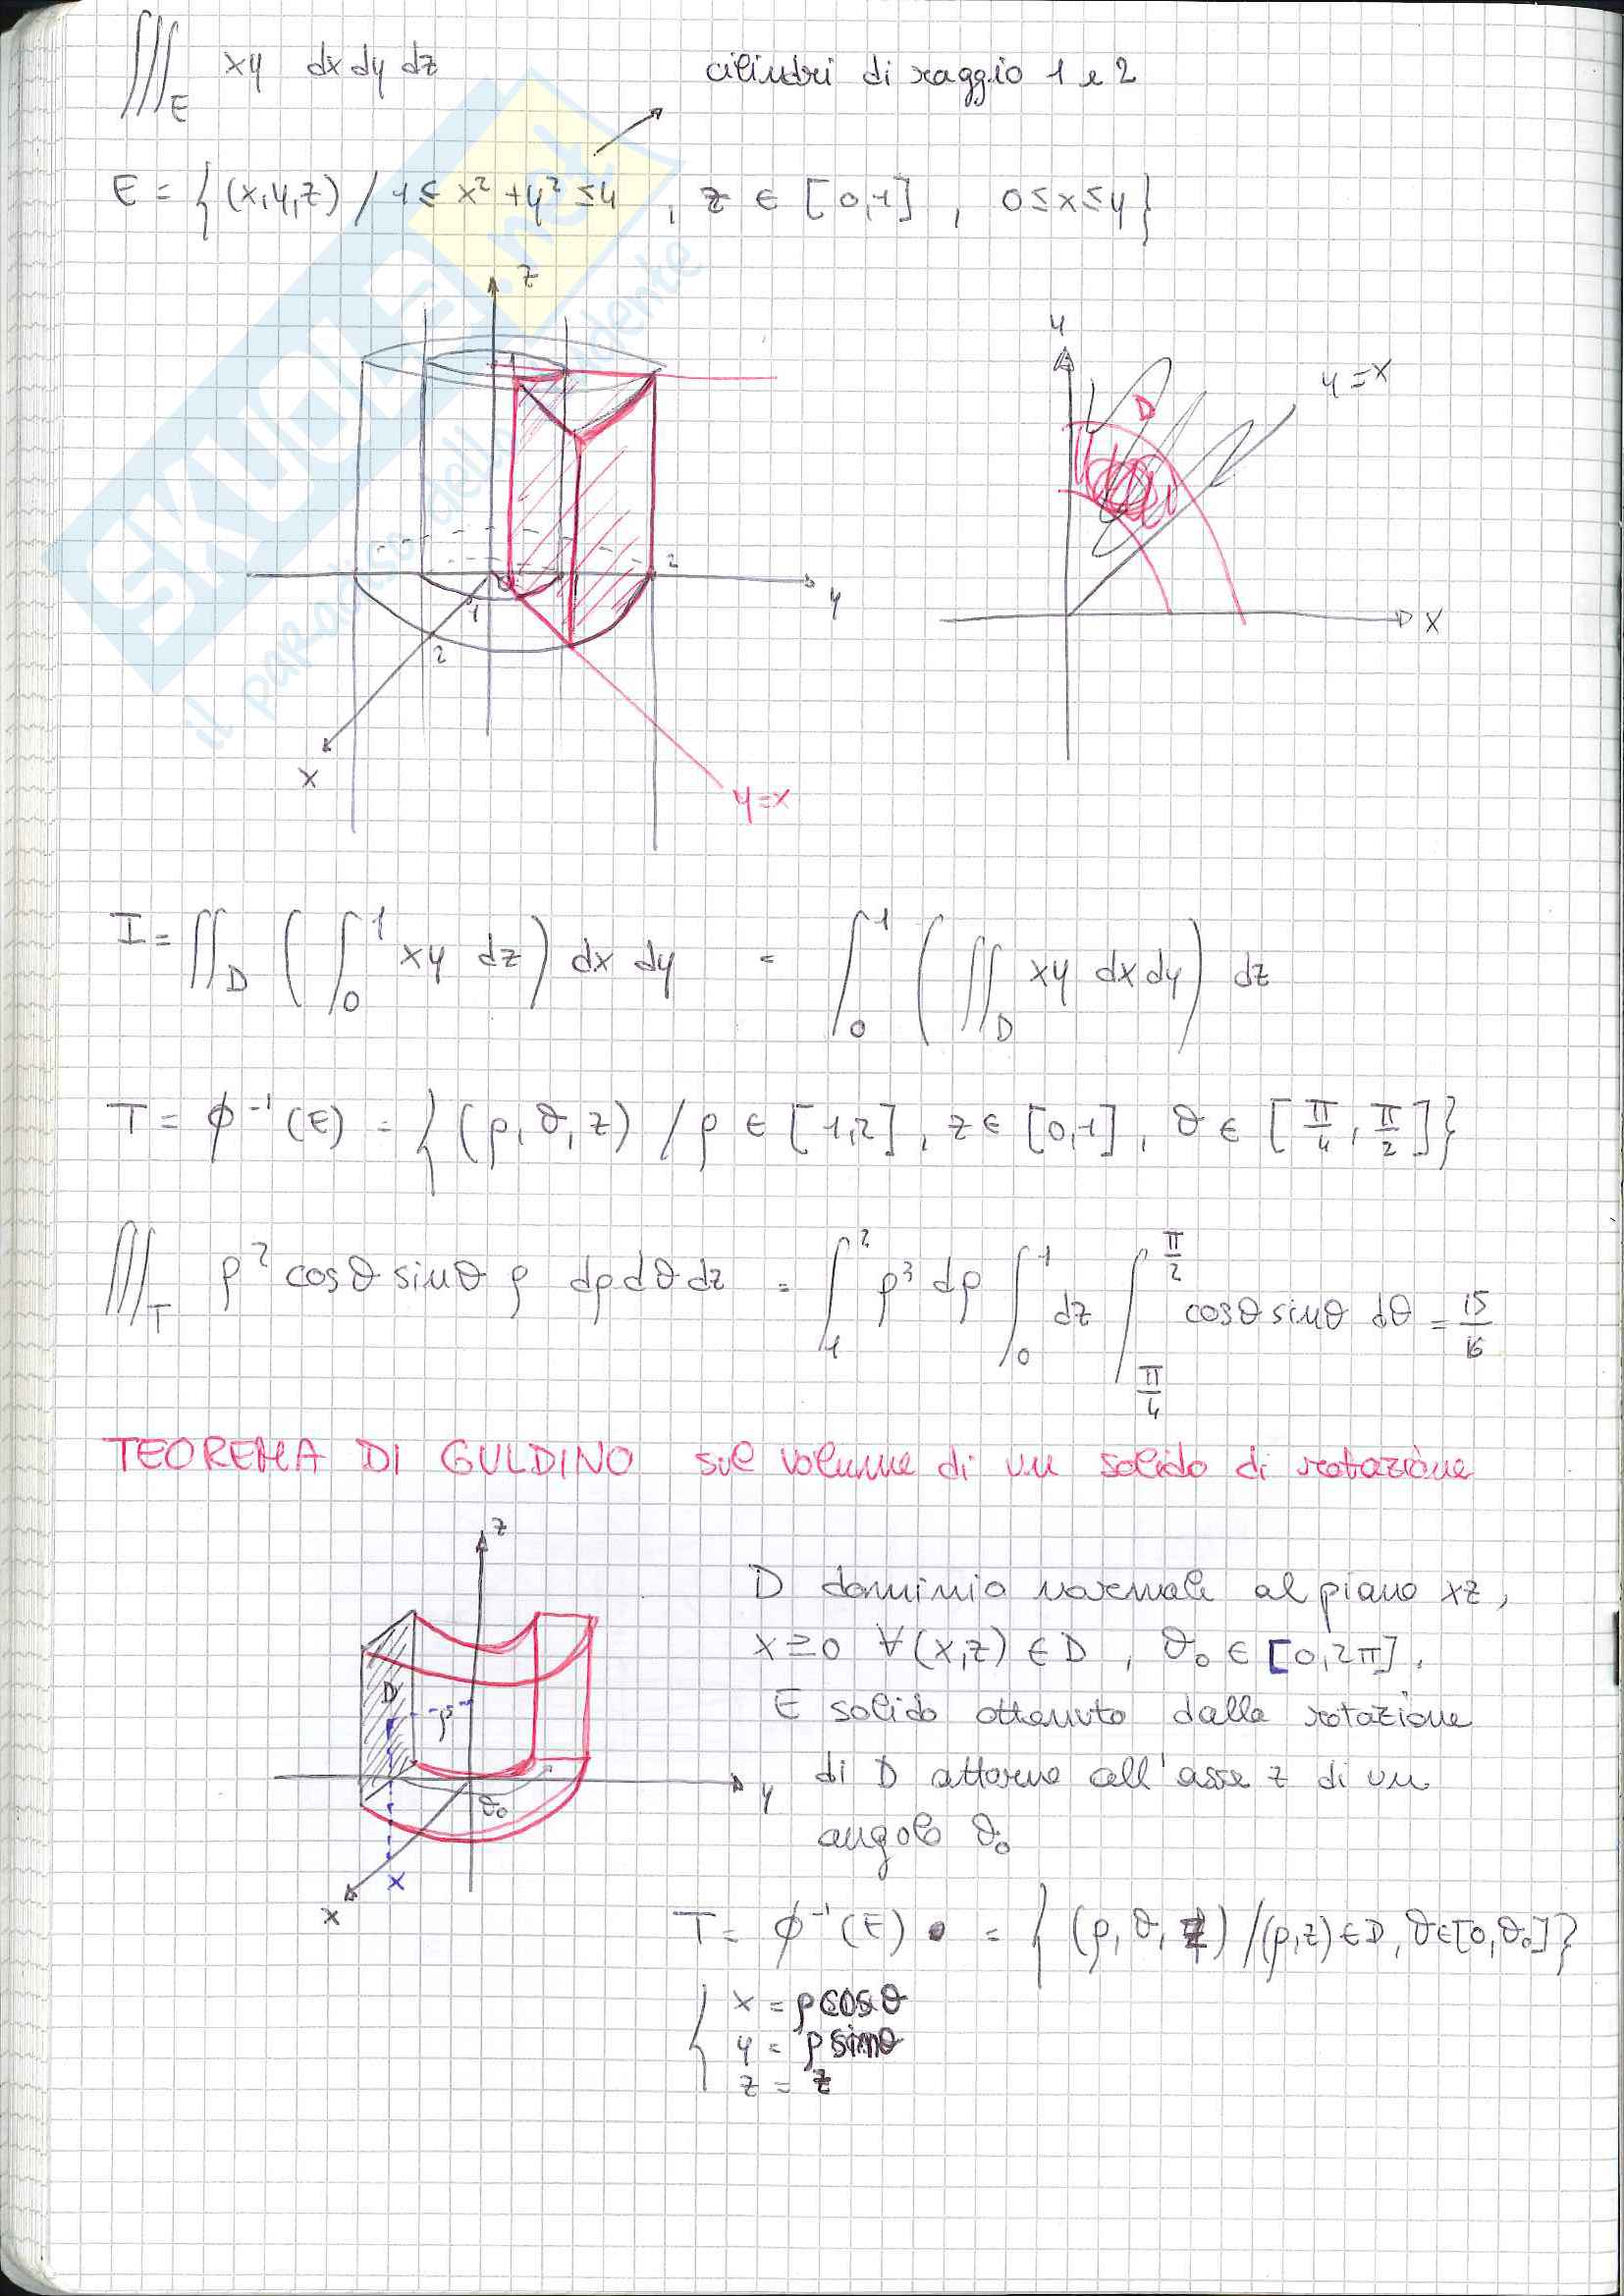 ∭_E xy dx dy dz cilindri di raggio 1 e 2
E = { (x,y,z) / 1 ≤ x² + y² ≤ 4 , z ∈ [0,1] , 0 ≤ x ≤ y }
SKUOLA.net
il paradiso degli studenti
z
y
x
1
2
2
y=x
y
D
y=x
x
I = ∬_D ( ∫_0^1 xy dz ) dx dy = ∫_0^1 ( ∬_D xy dx dy ) dz
T = ϕ⁻¹(E) = { (ρ, ϑ, z) / ρ ∈ [1,2] , z ∈ [0,1] , ϑ ∈ [π/4 , π/2] }
∭_T ρ² cosϑ sinϑ ρ dρ dϑ dz = ∫_1^2 ρ³ dρ ∫_0^1 dz ∫_{π/4}^{π/2} cosϑ sinϑ dϑ = 15/16
TEOREMA DI GULDINO sul volume di un solido di rotazione
z
D
ρ
ϑ₀
y
x
x
D dominio normale al piano xz,
x ≥ 0 ∀(x,z) ∈ D , ϑ₀ ∈ [0,2π].
E solido ottenuto dalla rotazione
di D attorno all'asse z di un
angolo ϑ₀
T = ϕ⁻¹(E) = { (ρ, ϑ, z) / (ρ,z) ∈ D, ϑ ∈ [0, ϑ₀] }
{ x = ρ cosϑ
y = ρ sinϑ
z = z